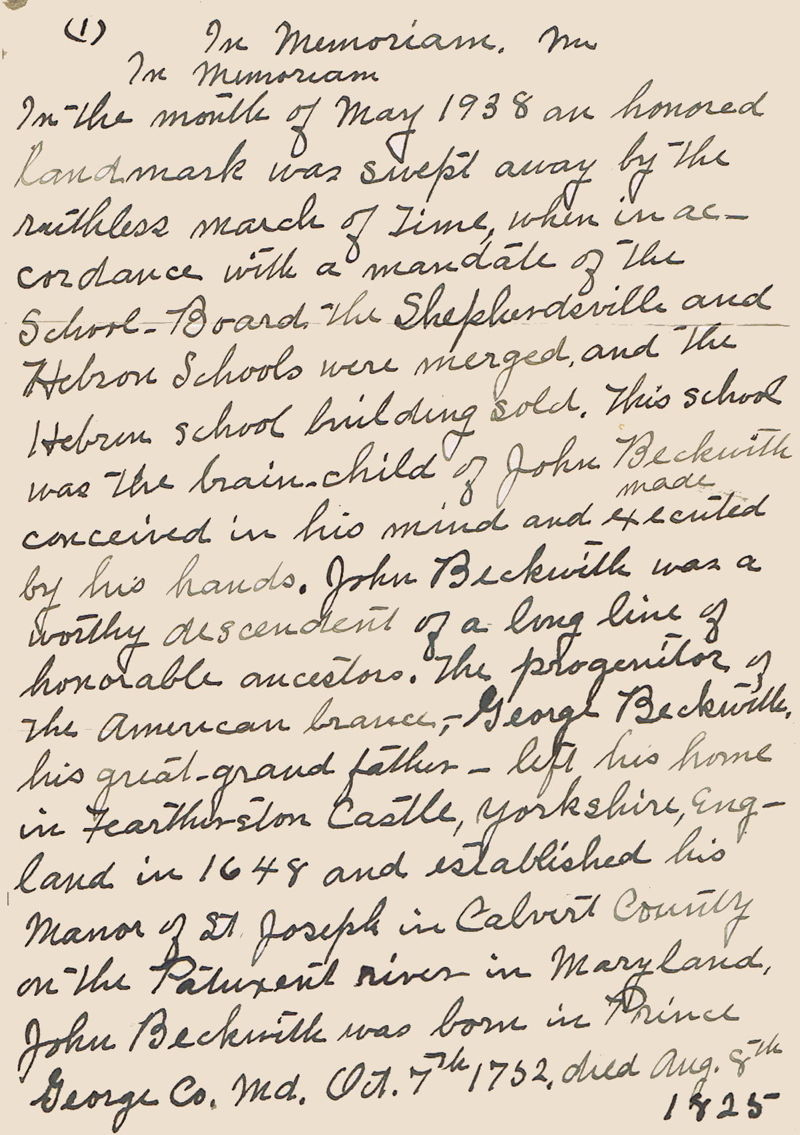 (1) In Memoriam. Mm
In Memoriam
In the month of May 1938 an honored
landmark was swept away by the
ruthless march of Time, when in ac-
cordance with a mandate of the
School-Board the Shepherdsville and
Hebron Schools were merged, and the
Hebron school building sold. This school
was the brain-child of John Beckwith
made
conceived in his mind and executed
by his hands. John Beckwith was a
worthy descendent of a long line of
honorable ancestors. The progenitor of
the American brance,- George Beckwith,
his great-grand father - left his home
in Fearthurston Castle, Yorkshire, Eng-
land in 1648 and established his
Manor of St Joseph in Calvert County
on the Patuxent river in Maryland,
John Beckwith was born in Prince
George Co. Md. Oct. 7th 1752, died Aug. 8th
1825